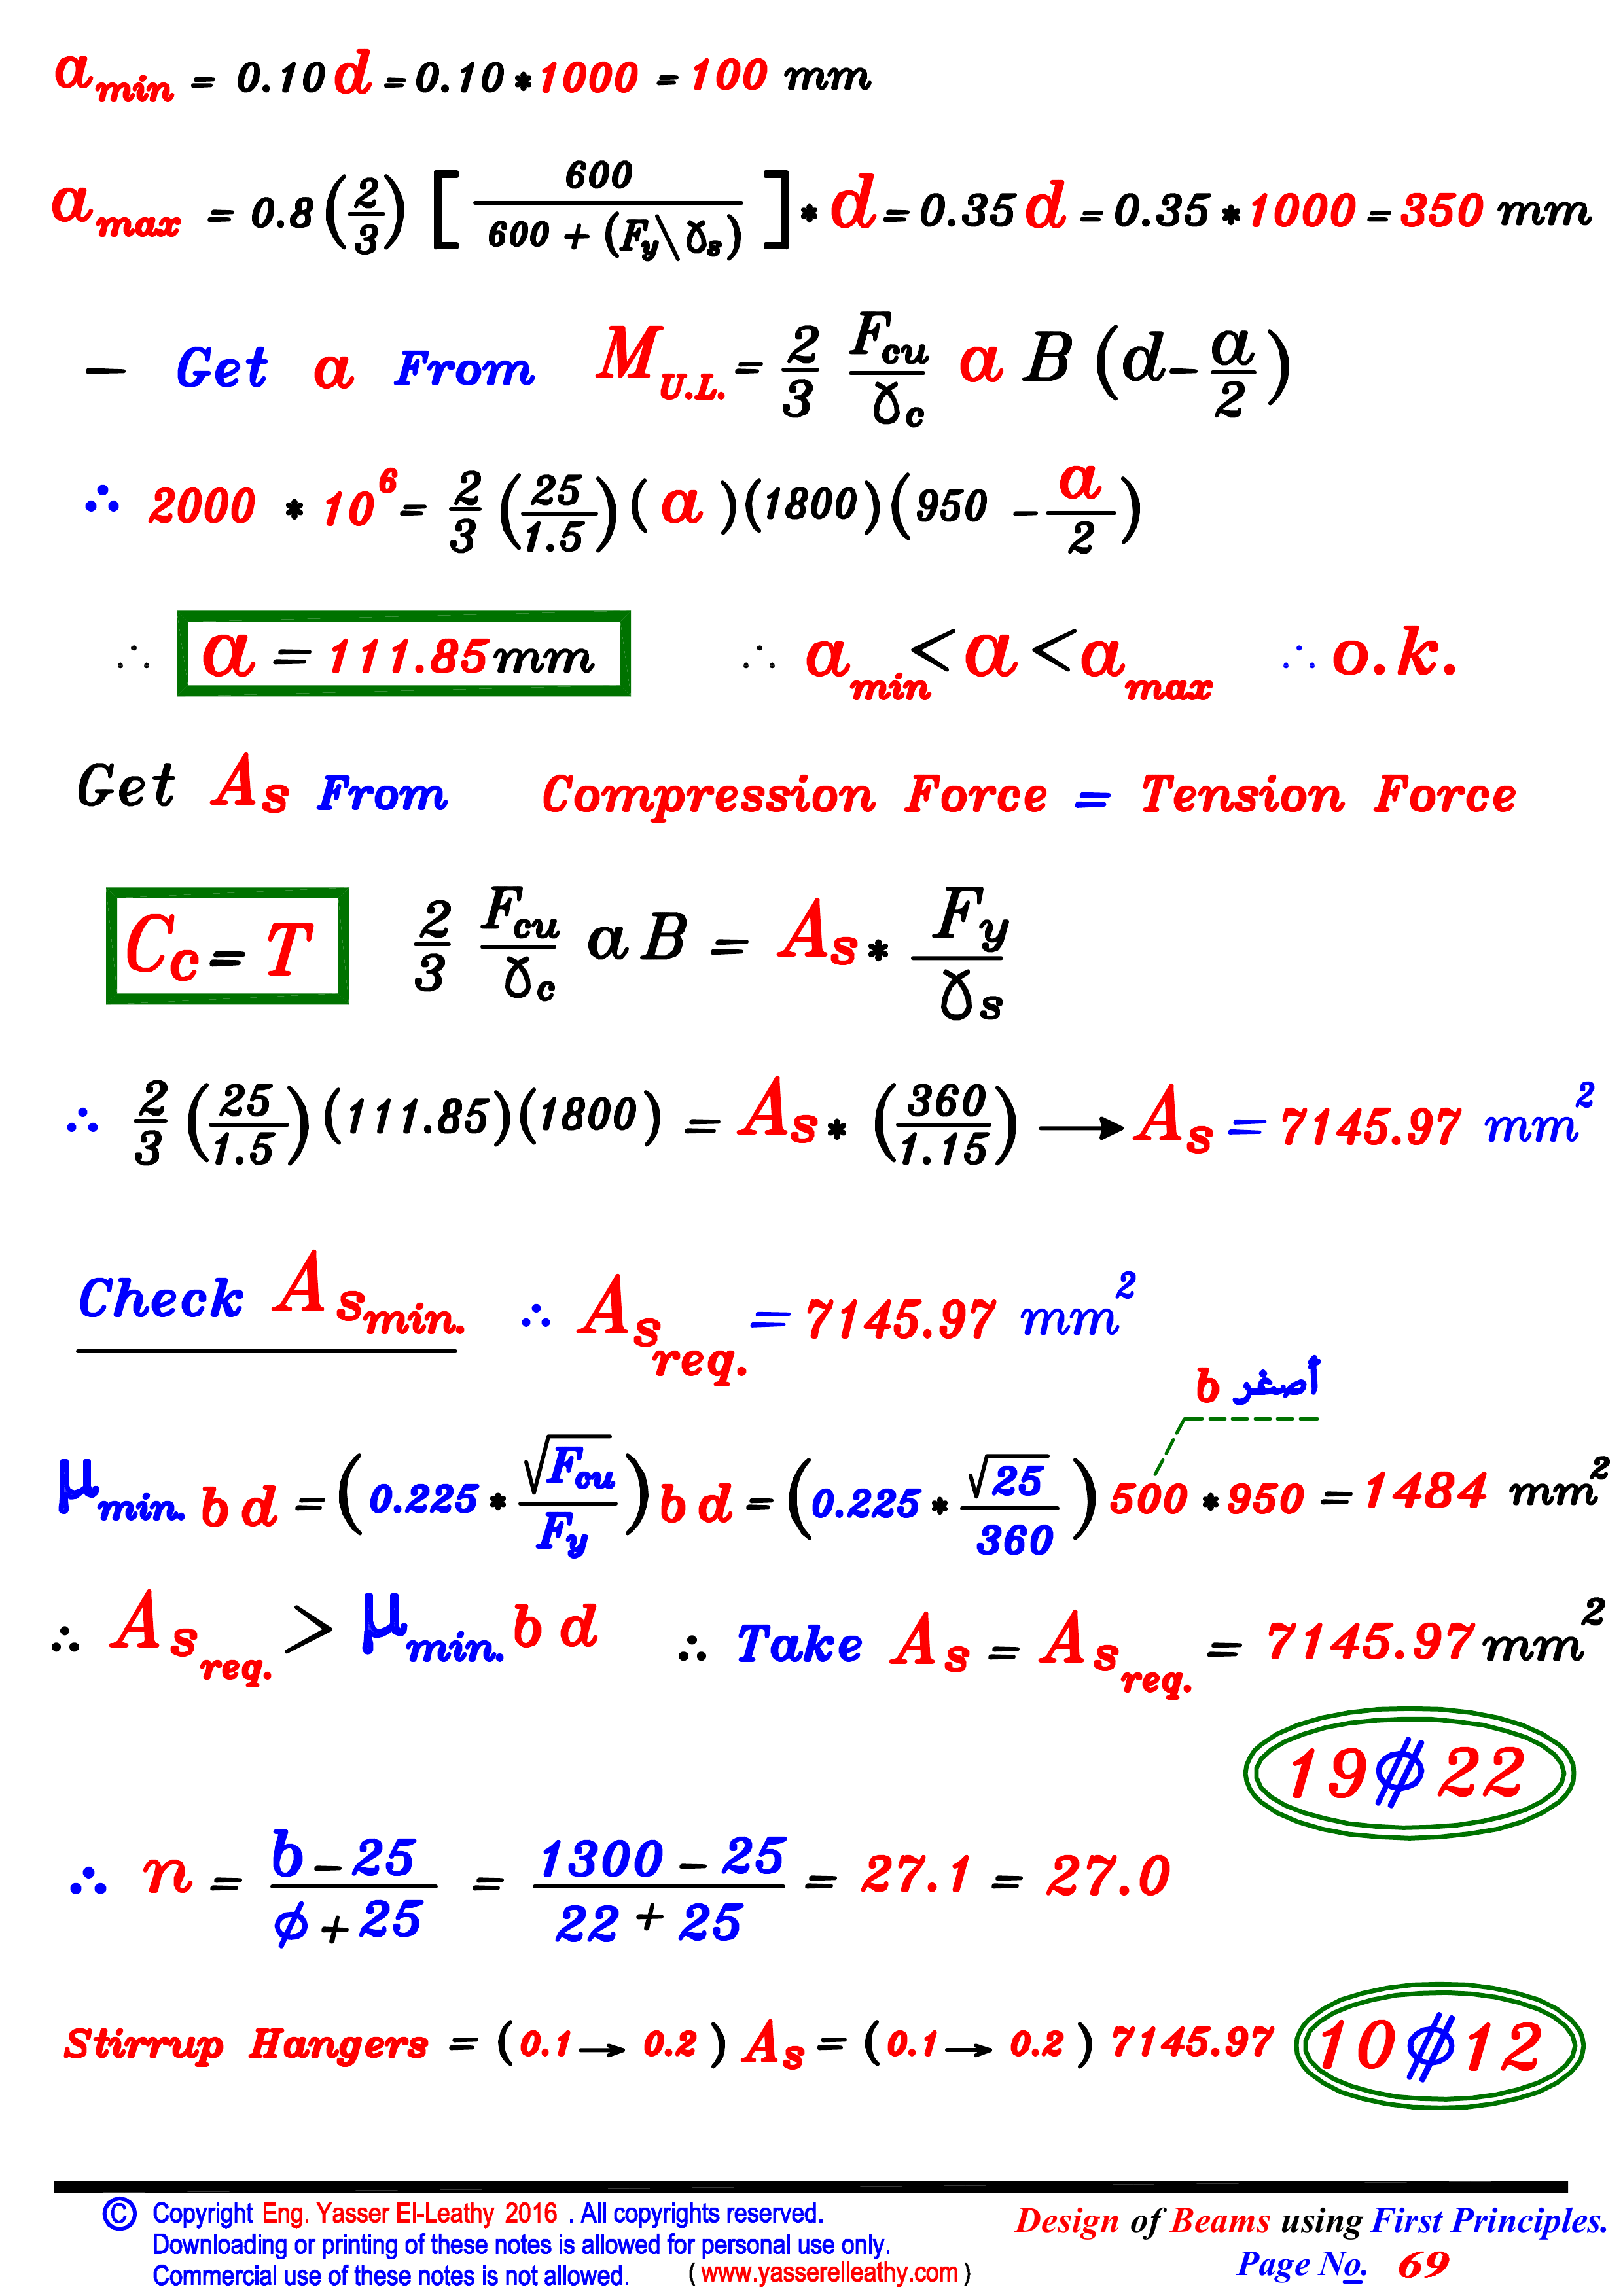 a min = 0.10 d = 0.10 * 1000 = 100 mm
a max = 0.8 (2/3) [ 600 / 600 + (Fy\γs) ] * d = 0.35 d = 0.35 * 1000 = 350 mm
- Get a From M U.L. = 2/3 Fcu/γc a B (d - a/2)
∴ 2000 * 10^6 = 2/3 (25/1.5) ( a ) (1800) (950 - a/2)
∴ a = 111.85 mm ∴ a min < a < a max ∴ o.k.
Get As From Compression Force = Tension Force
Cc = T 2/3 Fcu/γc a B = As * Fy/γs
∴ 2/3 (25/1.5) (111.85) (1800) = As * (360/1.15) → As = 7145.97 mm²
Check As min. ∴ As req. = 7145.97 mm²
b أصغر
μ min. b d = (0.225 * √Fou / Fy) b d = (0.225 * √25 / 360) 500 * 950 = 1484 mm²
∴ As req. > μ min. b d ∴ Take As = As req. = 7145.97 mm²
19 ⌀ 22
∴ n = b - 25 / φ + 25 = 1300 - 25 / 22 + 25 = 27.1 = 27.0
Stirrup Hangers = (0.1 → 0.2) As = (0.1 → 0.2) 7145.97 10 ⌀ 12
© Copyright Eng. Yasser El-Leathy 2016 . All copyrights reserved.
Downloading or printing of these notes is allowed for personal use only.
Commercial use of these notes is not allowed. ( www.yasserelleathy.com )
Design of Beams using First Principles.
Page No. 69